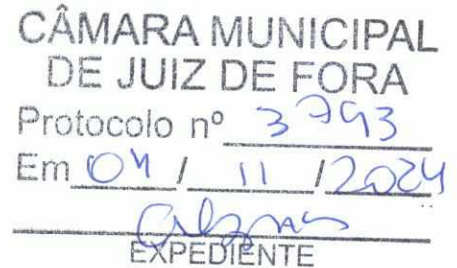 CÂMARA MUNICIPAL
DE JUIZ DE FORA
Protocolo nº 3793
Em 04 / 11 / 2024
EXPEDIENTE